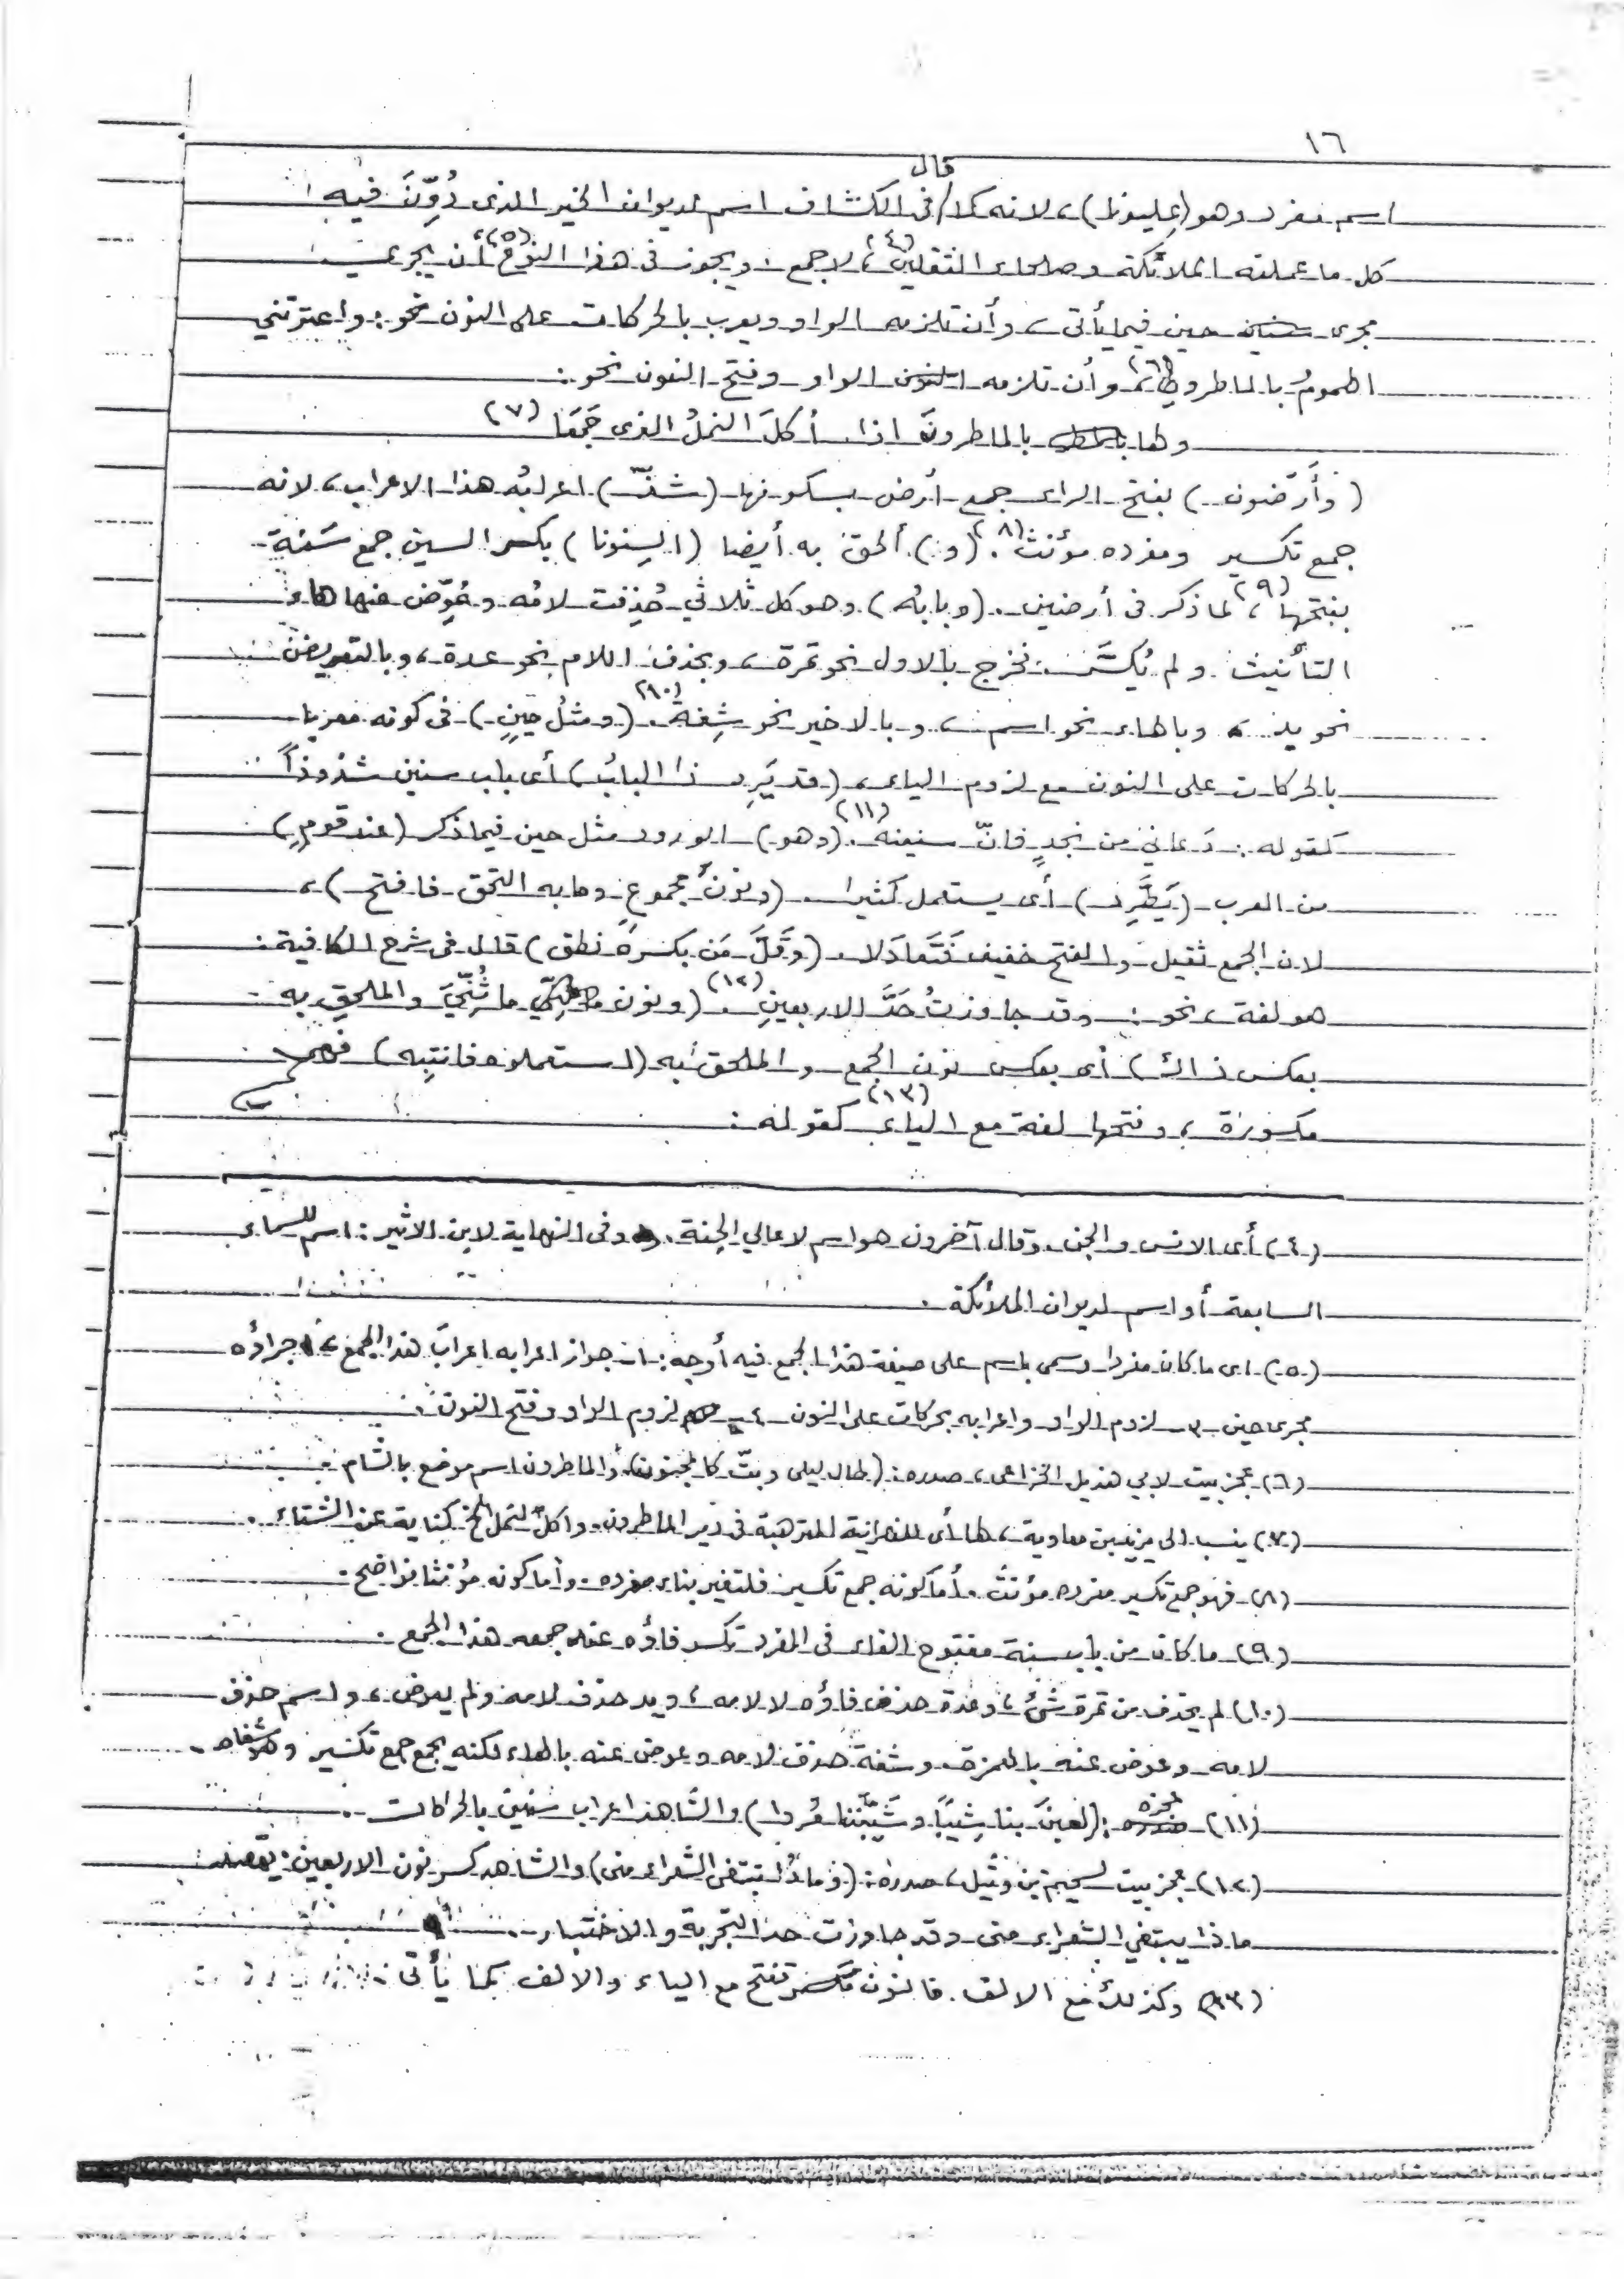 ١٦
اسم مفرد وهو (عليونا)، لانه كما قال في الكشاف اسم لديوان الخير الذى دُوِّنَ فيه
كل ما عملته الملائكة وصلحاء الثقلين(٤)، لا جمع. ويجوز فى هذا النوع(٥) أن يجرى
مجرى حين فيما يأتى، وأن تلزمه الواو ويعرب بالحركات على النون نحو: واعترتني
الهمومُ بالماطرونِ(٦)، وأن تلزمه الواو وفتح النون نحو:
ولها بالماطرونَ اذا أكلَ النملُ الذى جَمَعَا (٧)
(وأَرَضون) بفتح الراء جمع أرض بسكونها (شذّ) اعرابُه هذا الاعراب، لانه
جمع تكسير ومفرده مؤنث(٨). (و) ألحق به أيضا (السِنونا) بكسر السين جمع سَنة
بفتحها(٩)، لما ذكر فى أرضين. (وبابُه) وهو كل ثلاثي حُذِفت لامُه وعُوِّض عنها هاء
التأنيث ولم يُكسَّر: فخرج بالاول نحو تمرة، وبحذف اللام نحو عدة، وبالتعويض
نحو يد، وبالهاء نحو اسم، وبالاخير نحو شفة(١٠). (ومثلُ حينٍ) فى كونه معربا
بالحركات على النون مع لزوم الياء، (قد يَرِد ذا البابُ) أى باب سنين شذوذاً
كقوله: دَعاني من نجدٍ فانّ سنينه(١١). (وهو) الورود مثل حين فيما ذكر (عند قومٍ)
من العرب (يَطَّرِد) أى يستعمل كثيرا. (ونونَ مجموعٍ وما به التحق فافتح)،
لان الجمع ثقيل والفتح خفيف فَتَعادَلا. (وقَلَّ مَن بكسرهِ نطق) قال فى شرح الكافية:
هو لغة، نحو: وقد جاوزتُ حَدَّ الاربعينِ(١٢). (ونون ما ثُنِّيَ والملحق به
بعكس ذاك) أى بعكس نون الجمع والملحق به (استعملوه فانتبِه) فهى
مكسورة، وفتحها لغة مع الياء(١٣) كقوله:
(٤) أى الانس والجن. وقال آخرون هو اسم لاعالي الجنة. وفى النهاية لابن الاثير: اسم للسماء
السابعة أو اسم لديوان الملائكة.
(٥) اى ما كان مفردا وسمى باسم على صيغة هذا الجمع فيه أوجه: ١- جواز اعرابه اعرابَ هذا الجمع ٢- اجراؤه
مجرى حين ٣- لزوم الواو واعرابه بحركات على النون ٤- لزوم الواو وفتح النون.
(٦) عجز بيت لابي هذيل الخزاعى، صدره: (طال ليلى وبتّ كالمجنون) والماطرون اسم موضع بالشام
(٧) ينسب الى يزيد بن معاوية، لها أى للنصرانية المترهبة فى دير الماطرون. واكل النمل الخ كناية عن الشتاء.
(٨) فهو جمع تكسير مفرده مؤنث. أما كونه جمع تكسير فلتغير بناء مفرده. وأما كونه مؤنثا فواضح.
(٩) ما كان من باب سنة مفتوح الفاء فى المفرد تكسر فاؤه عند جمعه هذا الجمع.
(١٠) لم يحذف من تمرة شئ، وعدة حذف فاؤه لا لامه، ويد حذف لامه ولم يعوض، واسم حذف
لامه وعوض عنه بالهمزة. وشفة حذف لامه وعوض عنه بالهاء لكنه يجمع جمع تكسير وهو شفاه.
(١١) عجزه: (لعبنَ بنا شِيباً وشَيَّبننا مُردا) والشاهد اعراب سنين بالحركات.
(١٢) عجز بيت لسحيم بن وثيل، صدره: (وماذا تبتغى الشعراء منى) والشاهد كسر نون الاربعين. يقصد:
ماذا يبتغي الشعراء منى وقد جاوزت حد التجربة والاختبار.
(١٣) وكذلك مع الالف. فالنون تفتح مع الياء والالف كما يأتى.